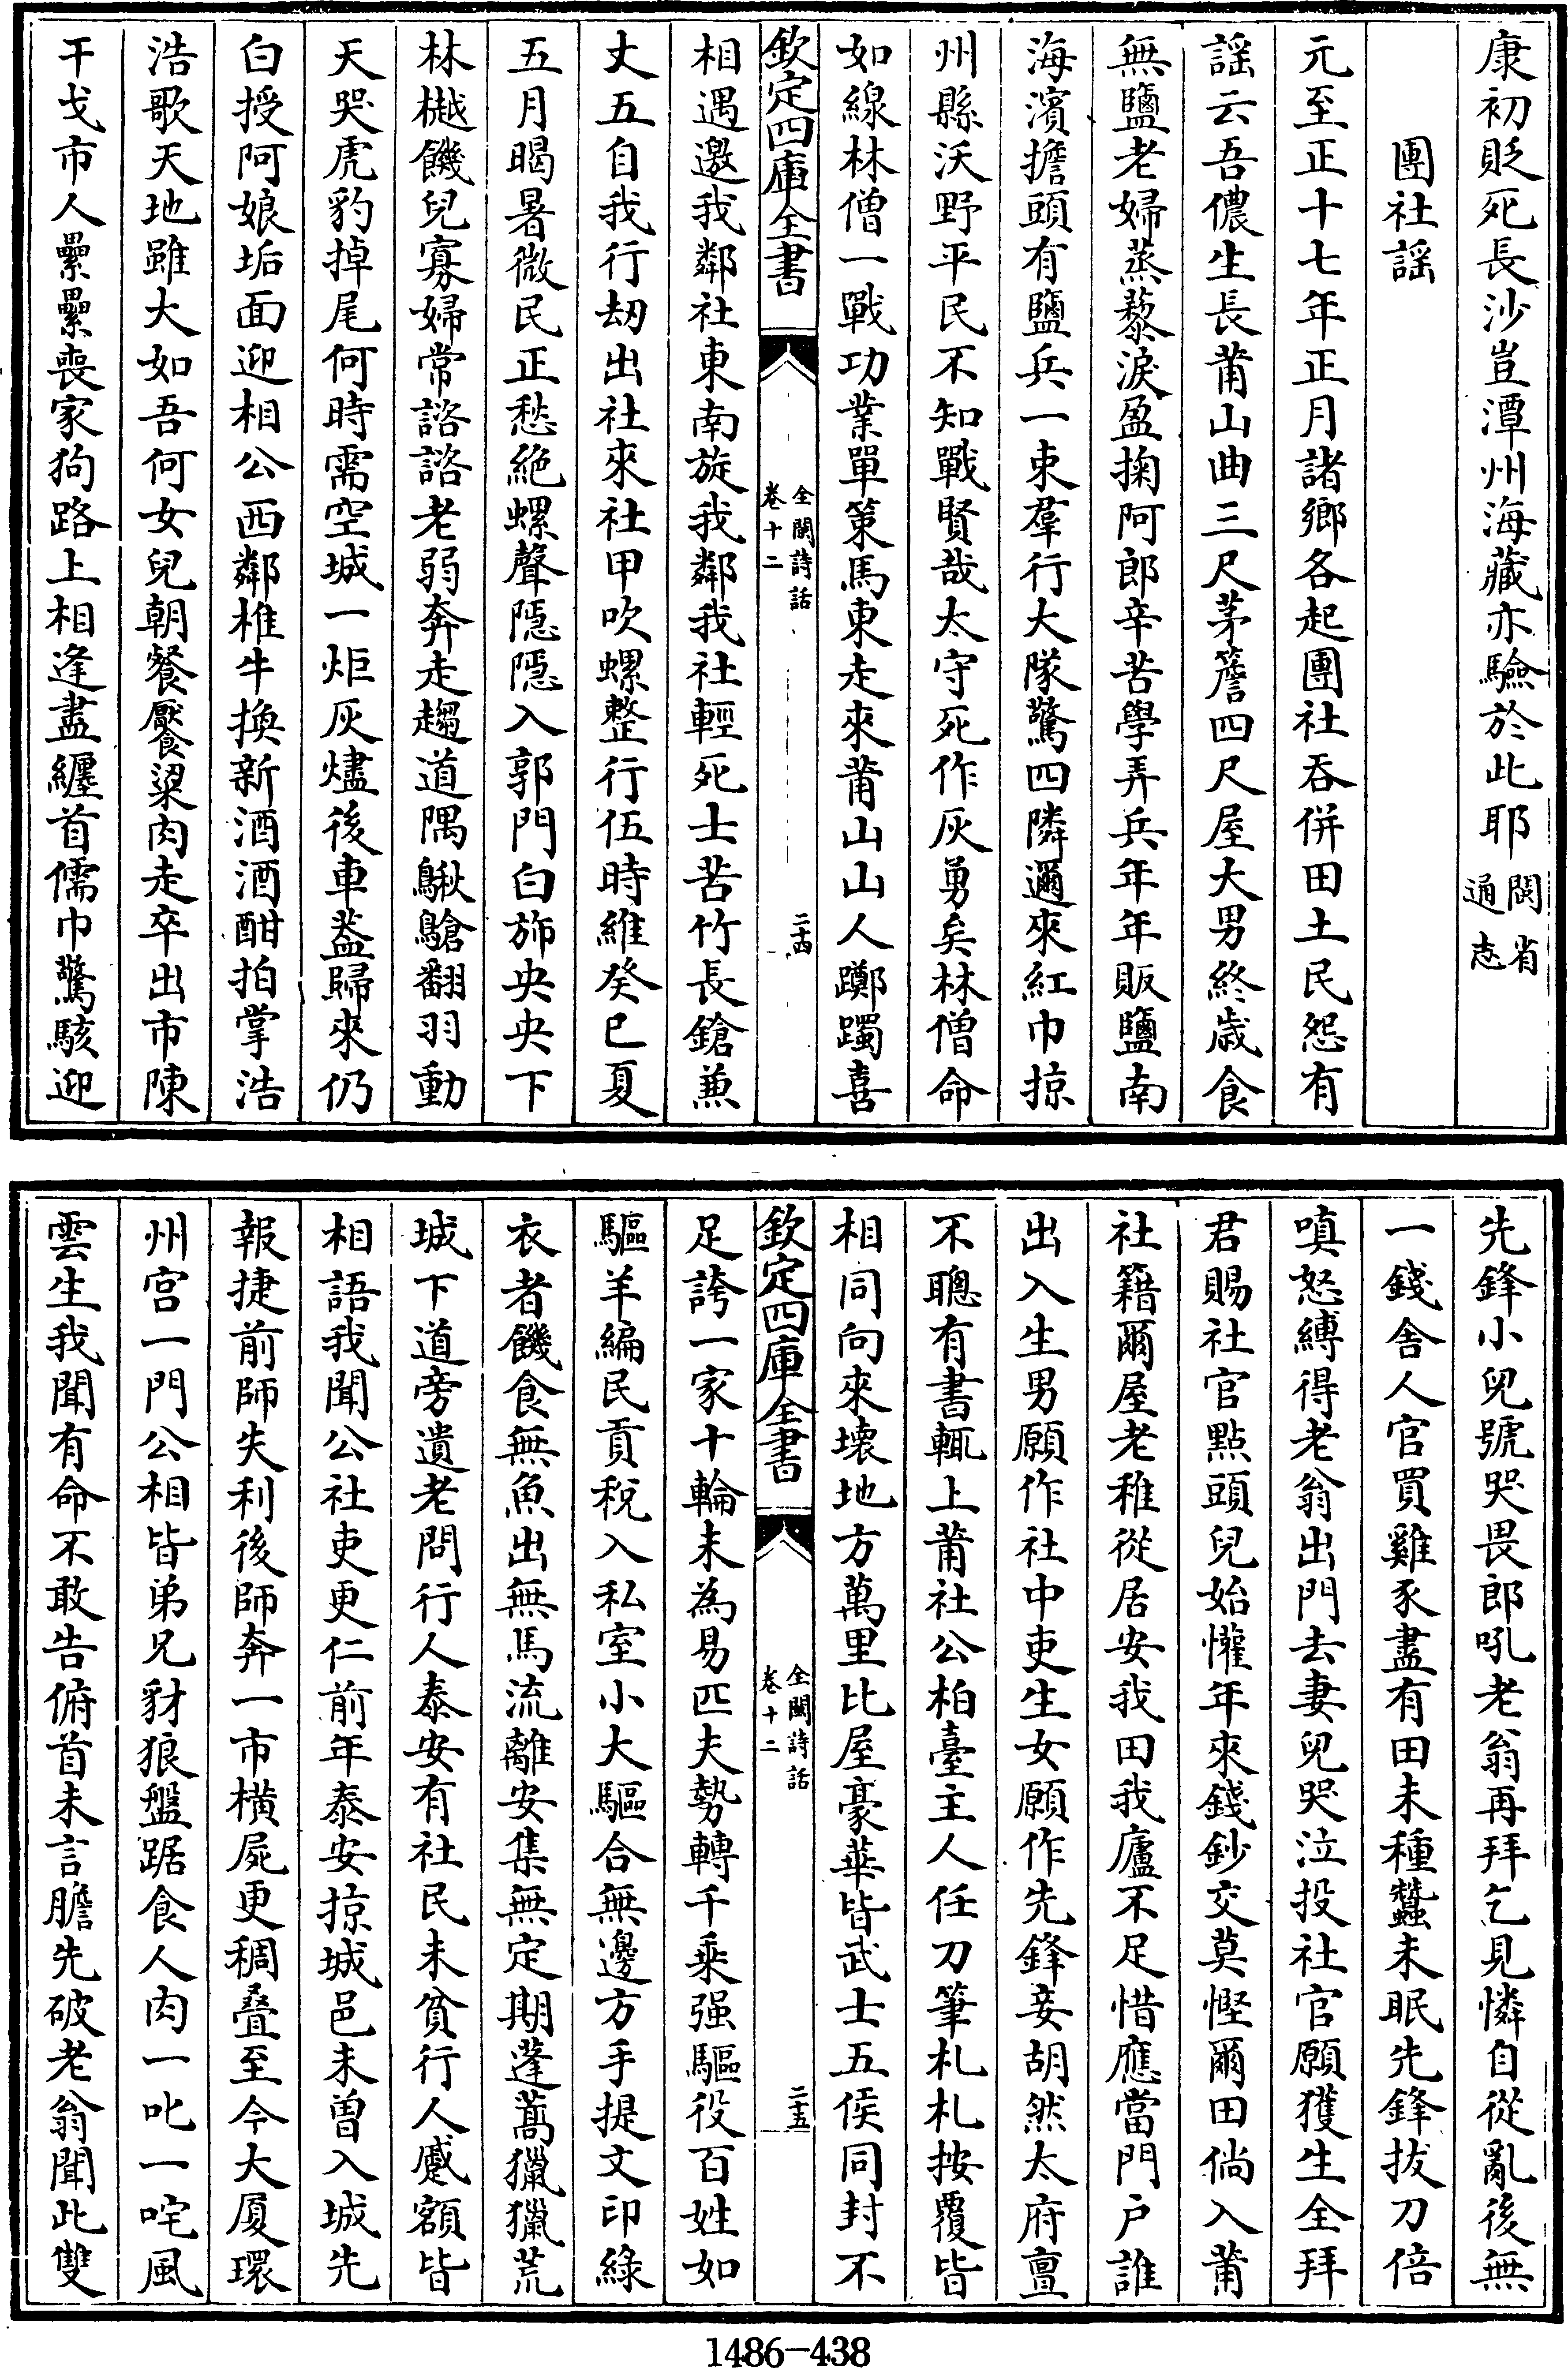 康初貶死長沙豈潭州海藏亦驗於此耶閩省通志
團社謡
元至正十七年正月諸鄉各起團社吞併田土民怨有
謡云吾儂生長莆山曲三尺茅簷四尺屋大男終歲食
無鹽老婦蒸藜淚盈掬阿郎辛苦學弄兵年年販鹽南
海濱擔頭有鹽兵一束羣行大隊驚四隣邇來紅巾掠
州縣沃野平民不知戰賢哉太守死作灰勇矣林僧命
如線林僧一戰功業單策馬東走來莆山山人躑躅喜
欽定四庫全書
全閩詩話
卷十二
二十四
相遇邀我鄰社東南旋我鄰我社輕死士苦竹長鎗兼
丈五自我行刼出社來社甲吹螺整行伍時維癸巳夏
五月暍暑微民正愁絶螺聲隱隱入郭門白斾央央下
林樾饑兒寡婦常諮諮老弱奔走趨道隅鶖鶬翻羽動
天哭虎豹掉尾何時需空城一炬灰燼後車葢歸來仍
白授阿娘垢面迎相公西鄰椎牛換新酒酒酣拍掌浩
浩歌天地雖大如吾何女兒朝餐饜粱肉走卒出市陳
干戈市人纍纍喪家狗路上相逢盡纒首儒巾驚駭迎
先鋒小兒號哭畏郎吼老翁再拜乞見憐自從亂後無
一錢舍人官買雞豕盡有田未種蠶未眠先鋒拔刀倍
嗔怒縛得老翁出門去妻兒哭泣投社官願獲生全拜
君賜社官點頭兒始懽年來錢鈔交莫慳爾田倘入莆
社籍爾屋老稚從居安我田我廬不足惜應當門户誰
出入生男願作社中吏生女願作先鋒妾胡然太府亶
不聰有書輒上莆社公柏臺主人任刀筆札札按覆皆
相同向來壊地方萬里比屋豪華皆武士五侯同封不
欽定四庫全書
全閩詩話
卷十二
二十五
足誇一家十輪未為易匹夫勢轉千乗强驅役百姓如
驅羊編民貢稅入私室小大驅合無邊方手提文印綠
衣者饑食無魚出無馬流離安集無定期蓬蒿獵獵荒
城下道旁遺老問行人泰安有社民未貧行人蹙額皆
相語我聞公社吏更仁前年泰安掠城邑未曽入城先
報捷前師失利後師奔一市橫屍更稠疊至今大厦環
州宫一門公相皆弟兄豺狼盤踞食人肉一叱一咤風
雲生我聞有命不敢告俯首未言膽先破老翁聞此雙
1486-438